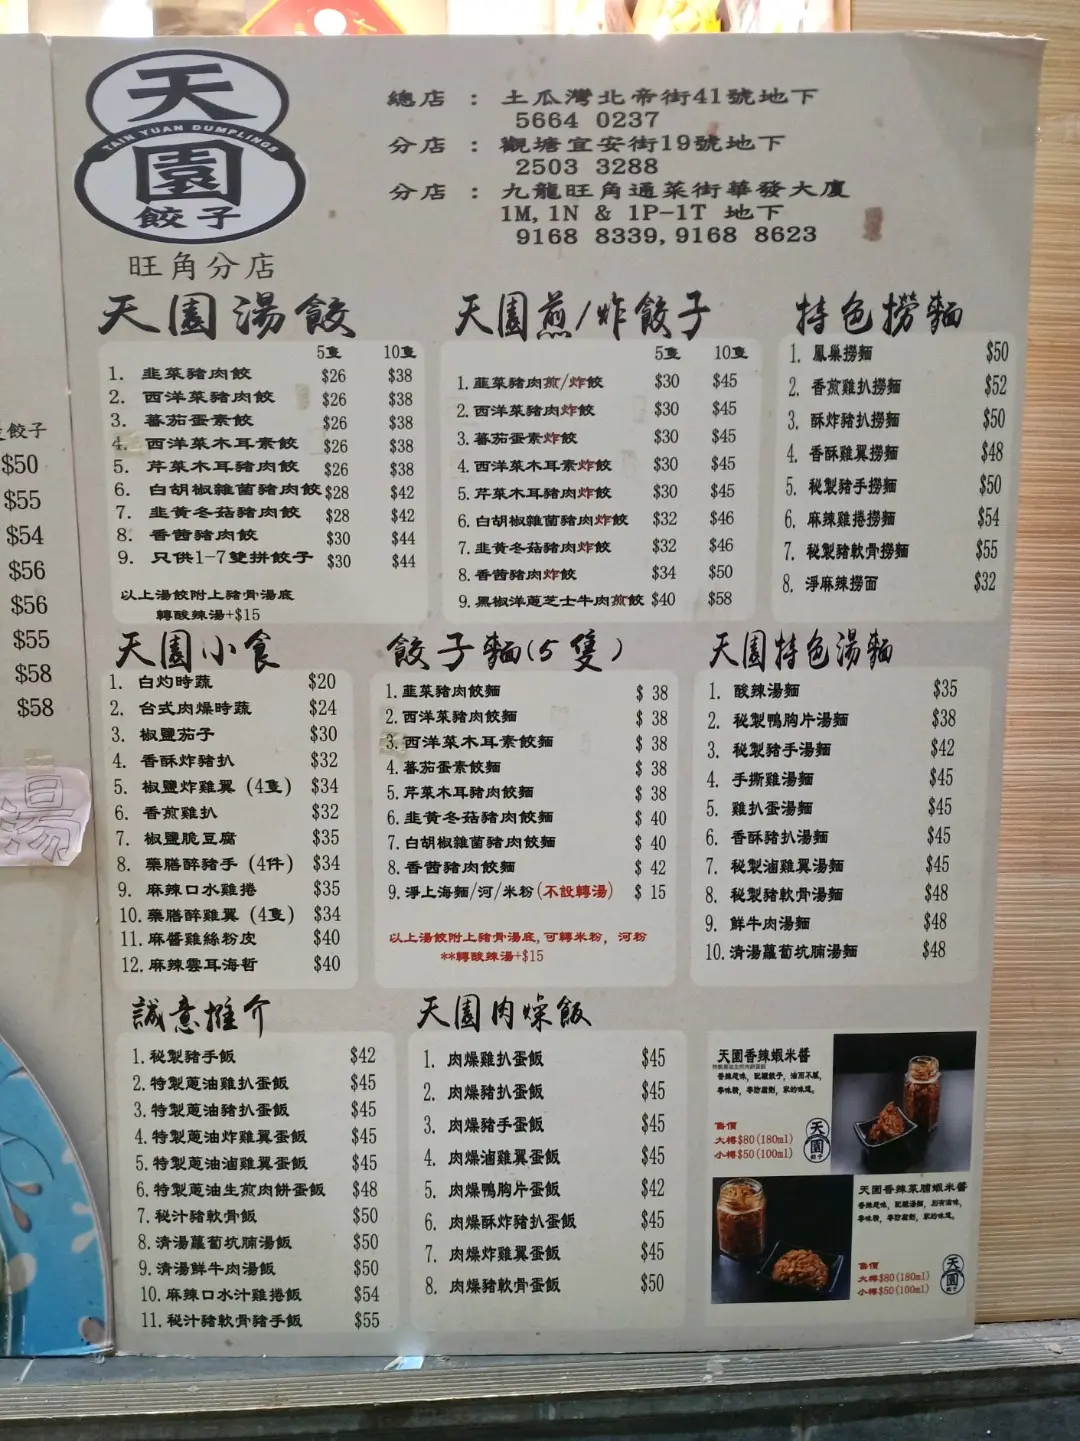 天
TAIN YUAN DUMPLINGS
園
餃子
旺角分店
總店 : 土瓜灣北帝街41號地下
5664 0237
分店 : 觀塘宜安街19號地下
2503 3288
分店 : 九龍旺角通菜街華發大廈
1M,1N & 1P-1T 地下
9168 8339,9168 8623
餃子
$50
$55
$54
$56
$56
$55
$58
$58
湯
天園湯餃
5隻 10隻
1. 韭菜豬肉餃 $26 $38
2. 西洋菜豬肉餃 $26 $38
3. 蕃茄蛋素餃 $26 $38
4. 西洋菜木耳素餃 $26 $38
5. 芹菜木耳豬肉餃 $26 $38
6. 白胡椒雜菌豬肉餃 $28 $42
7. 韭黃冬菇豬肉餃 $28 $42
8. 香茜豬肉餃 $30 $44
9. 只供1-7雙拼餃子 $30 $44
以上湯餃附上豬骨湯底
轉酸辣湯+$15
天園煎/炸餃子
5隻 10隻
1.韮菜豬肉煎/炸餃 $30 $45
2.西洋菜豬肉炸餃 $30 $45
3.蕃茄蛋素炸餃 $30 $45
4.西洋菜木耳素炸餃 $30 $45
5.芹菜木耳豬肉炸餃 $30 $45
6.白胡椒雜菌豬肉炸餃 $32 $46
7.韭黃冬菇豬肉炸餃 $32 $46
8.香茜豬肉炸餃 $34 $50
9.黑椒洋蔥芝士牛肉煎餃 $40 $58
特色撈麵
1. 鳳巢撈麵 $50
2. 香煎雞扒撈麵 $52
3. 酥炸豬扒撈麵 $50
4. 香酥雞翼撈麵 $48
5. 秘製豬手撈麵 $50
6. 麻辣雞捲撈麵 $54
7. 秘製豬軟骨撈麵 $55
8. 淨麻辣撈面 $32
天園小食
1. 白灼時蔬 $20
2. 台式肉燥時蔬 $24
3. 椒鹽茄子 $30
4. 香酥炸豬扒 $32
5. 椒鹽炸雞翼 (4隻) $34
6. 香煎雞扒 $32
7. 椒鹽脆豆腐 $35
8. 藥膳醉豬手 (4件) $34
9. 麻辣口水雞捲 $35
10. 藥膳醉雞翼 (4隻) $34
11. 麻醬雞絲粉皮 $40
12. 麻辣雲耳海哲 $40
餃子麵(5隻)
1.韭菜豬肉餃麵 $ 38
2.西洋菜豬肉餃麵 $ 38
3.西洋菜木耳素餃麵 $ 38
4.蕃茄蛋素餃麵 $ 38
5.芹菜木耳豬肉餃麵 $ 38
6.韭黃冬菇豬肉餃麵 $ 40
7.白胡椒雜菌豬肉餃麵 $ 40
8.香茜豬肉餃麵 $ 42
9.淨上海麵/河/米粉(不設轉湯) $ 15
以上湯餃附上豬骨湯底,可轉米粉, 河粉
**轉酸辣湯+$15
天園特色湯麵
1. 酸辣湯麵 $35
2. 秘製鴨胸片湯麵 $38
3. 秘製豬手湯麵 $42
4. 手撕雞湯麵 $45
5. 雞扒蛋湯麵 $45
6. 香酥豬扒湯麵 $45
7. 秘製滷雞翼湯麵 $45
8. 秘製豬軟骨湯麵 $48
9. 鮮牛肉湯麵 $48
10.清湯蘿蔔坑腩湯麵 $48
誠意推介
1.秘製豬手飯 $42
2.特製蔥油雞扒蛋飯 $45
3.特製蔥油豬扒蛋飯 $45
4.特製蔥油炸雞翼蛋飯 $45
5.特製蔥油滷雞翼蛋飯 $45
6.特製蔥油生煎肉餅蛋飯 $48
7.秘汁豬軟骨飯 $50
8.清湯蘿蔔坑腩湯飯 $50
9.清湯鮮牛肉湯飯 $50
10.麻辣口水汁雞捲飯 $54
11.秘汁豬軟骨豬手飯 $55
天園肉燥飯
1. 肉燥雞扒蛋飯 $45
2. 肉燥豬扒蛋飯 $45
3. 肉燥豬手蛋飯 $45
4. 肉燥滷雞翼蛋飯 $45
5. 肉燥鴨胸片蛋飯 $42
6. 肉燥酥炸豬扒蛋飯 $45
7. 肉燥炸雞翼蛋飯 $45
8. 肉燥豬軟骨蛋飯 $50
天園香辣蝦米醬
香辣惹味, 配襯餃子, 油而不膩,
售價
大樽$80(180ml)
小樽$50(100ml)
天園餃子
天園香辣菜脯蝦米醬
售價
大樽$80(180ml)
小樽$50(100ml)
天園餃子